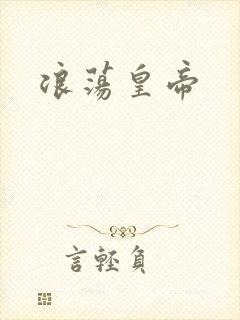 浪荡皇帝
言輕負